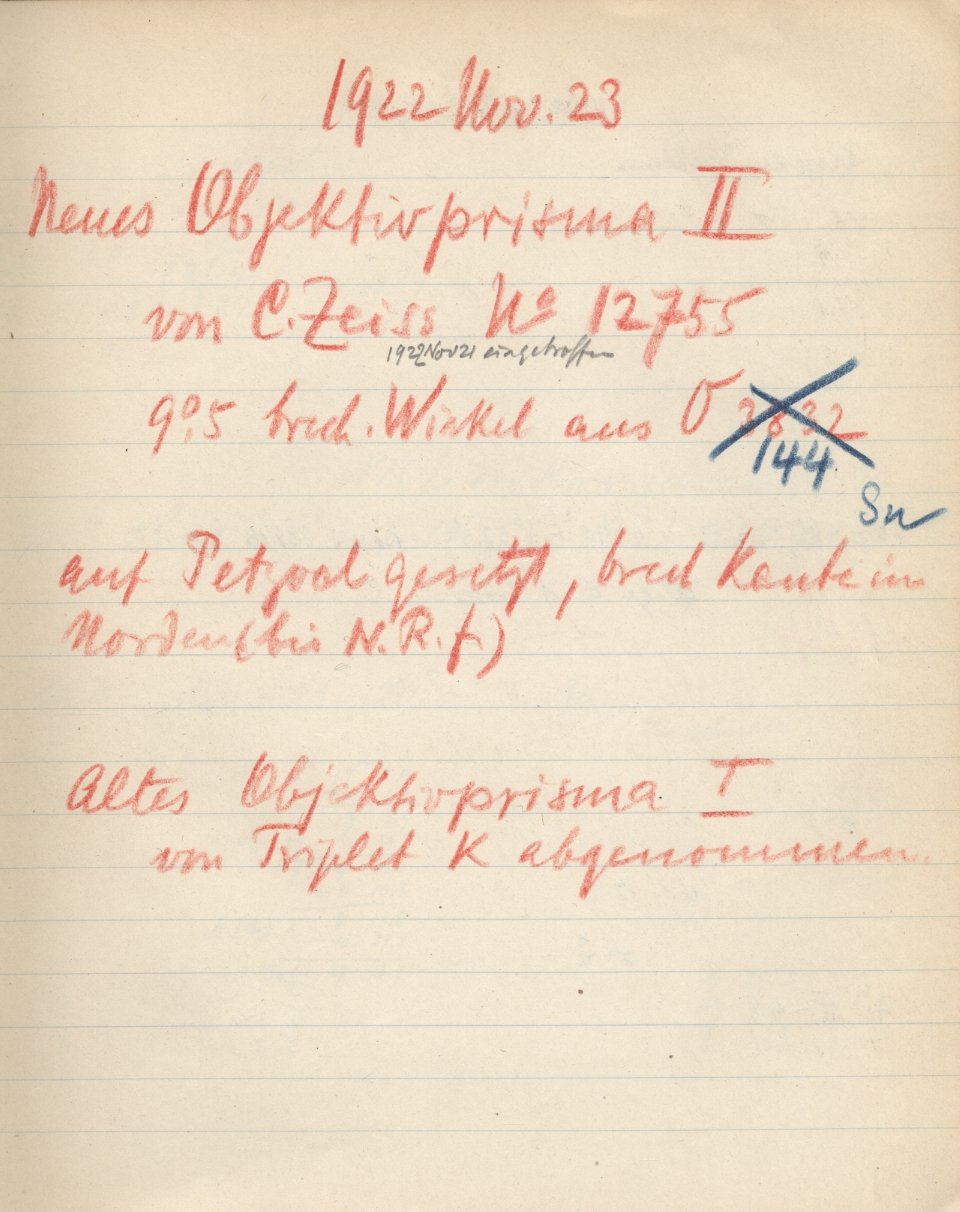 1922 Nov. 23
Neues Objektivprisma II
von C. Zeiss No 12755
1922 Nov 21 eingetroffen
9°,5 brech. Winkel aus O 3832
144
Sn
auf Petzval gesetzt, brech Kante im
Norden (bis N.R.f.)
Altes Objektivprisma I
von Triplet K abgenommen.